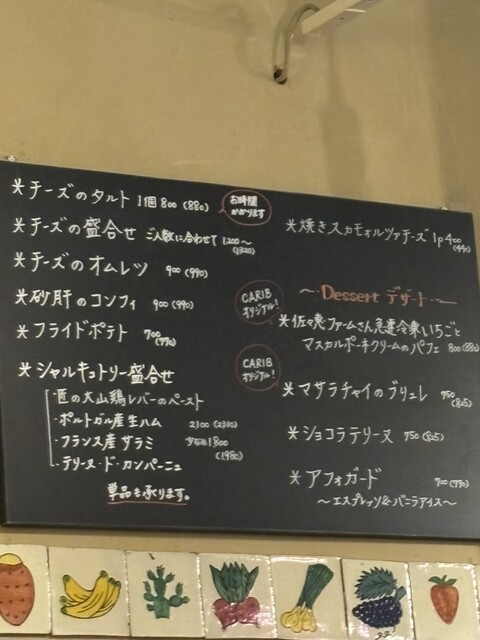 *チーズのタルト 1個 800 (880)
お時間
かかります
*チーズの盛合せ ご人数に合わせて 1,200〜
(1320)
*チーズのオムレツ 900 (990)
*砂肝のコンフィ 900 (990)
*フライドポテト 700
(770)
*シャルキュトリー盛合せ
・匠の大山鶏レバーのペースト
・ポルトガル産生ハム 2100 (2310)
・フランス産サラミ 1800
(1980)
・テリーヌ・ド・カンパーニュ
単品も承ります。
*焼きスカモォルツァチーズ 1p 400
(440)
〜 Dessert デザート 〜
CARIB
オリジナル!
*佐々木ファームさん急速冷凍いちごと
マスカルポーネクリームのパフェ 800 (880)
CARIB
オリジナル!
*マサラチャイのブリュレ 750
(825)
*ショコラテリーヌ 750 (825)
*アフォガード 700 (770)
〜エスプレッソ&バニラアイス〜